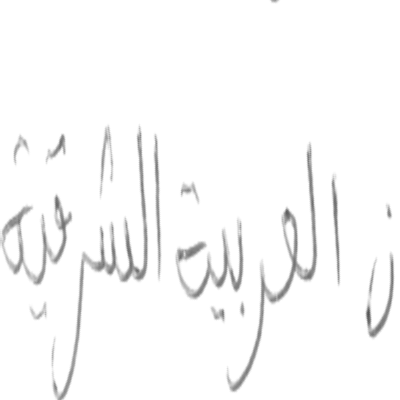 ن العربية الشرقية